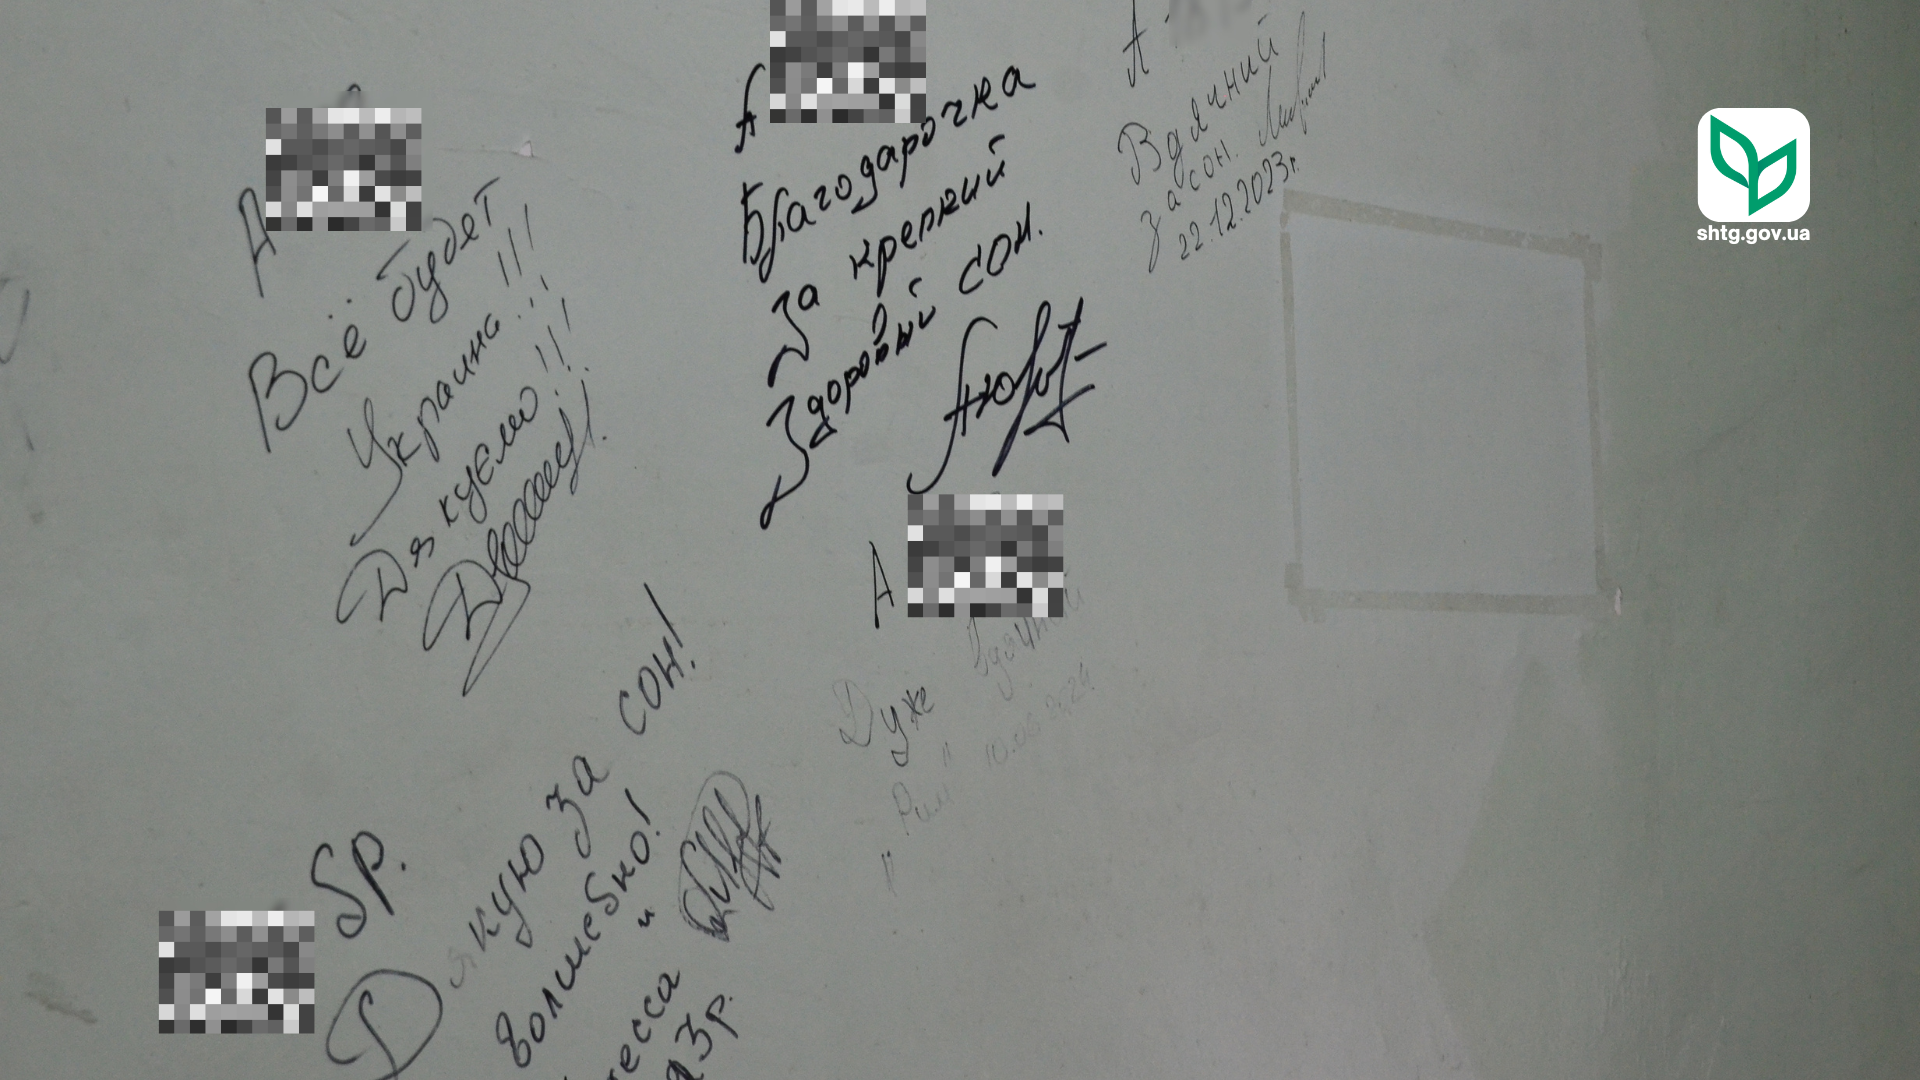 А
Всё будет
Украина!!!
Дякуємо!!!
А
Благодарочка
За крепкий
Здоровый сон.
А
Вдячний
За сон.
22.12.2023г.
А
Дуже вдячний
10.06.2024
бр.
Дякую за сон!
волшебно!
shtg.gov.ua